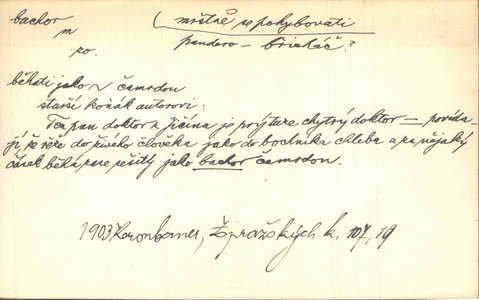 bachor ( mrštně se pohybovati
m pandero — břicháč?
ko.
běhati jako ~ čamrdou
starší kožák autorovi:
Ten pan doktor z Jičína je prýture chytrý doktor — povída-
jí, že řeže do živého člověka jako do bochníka chleba a za nějaký
čásek běhá zase zešitý jako bachor čamrdou.
1903 Kronbauer, Z pražských k. 107, 19